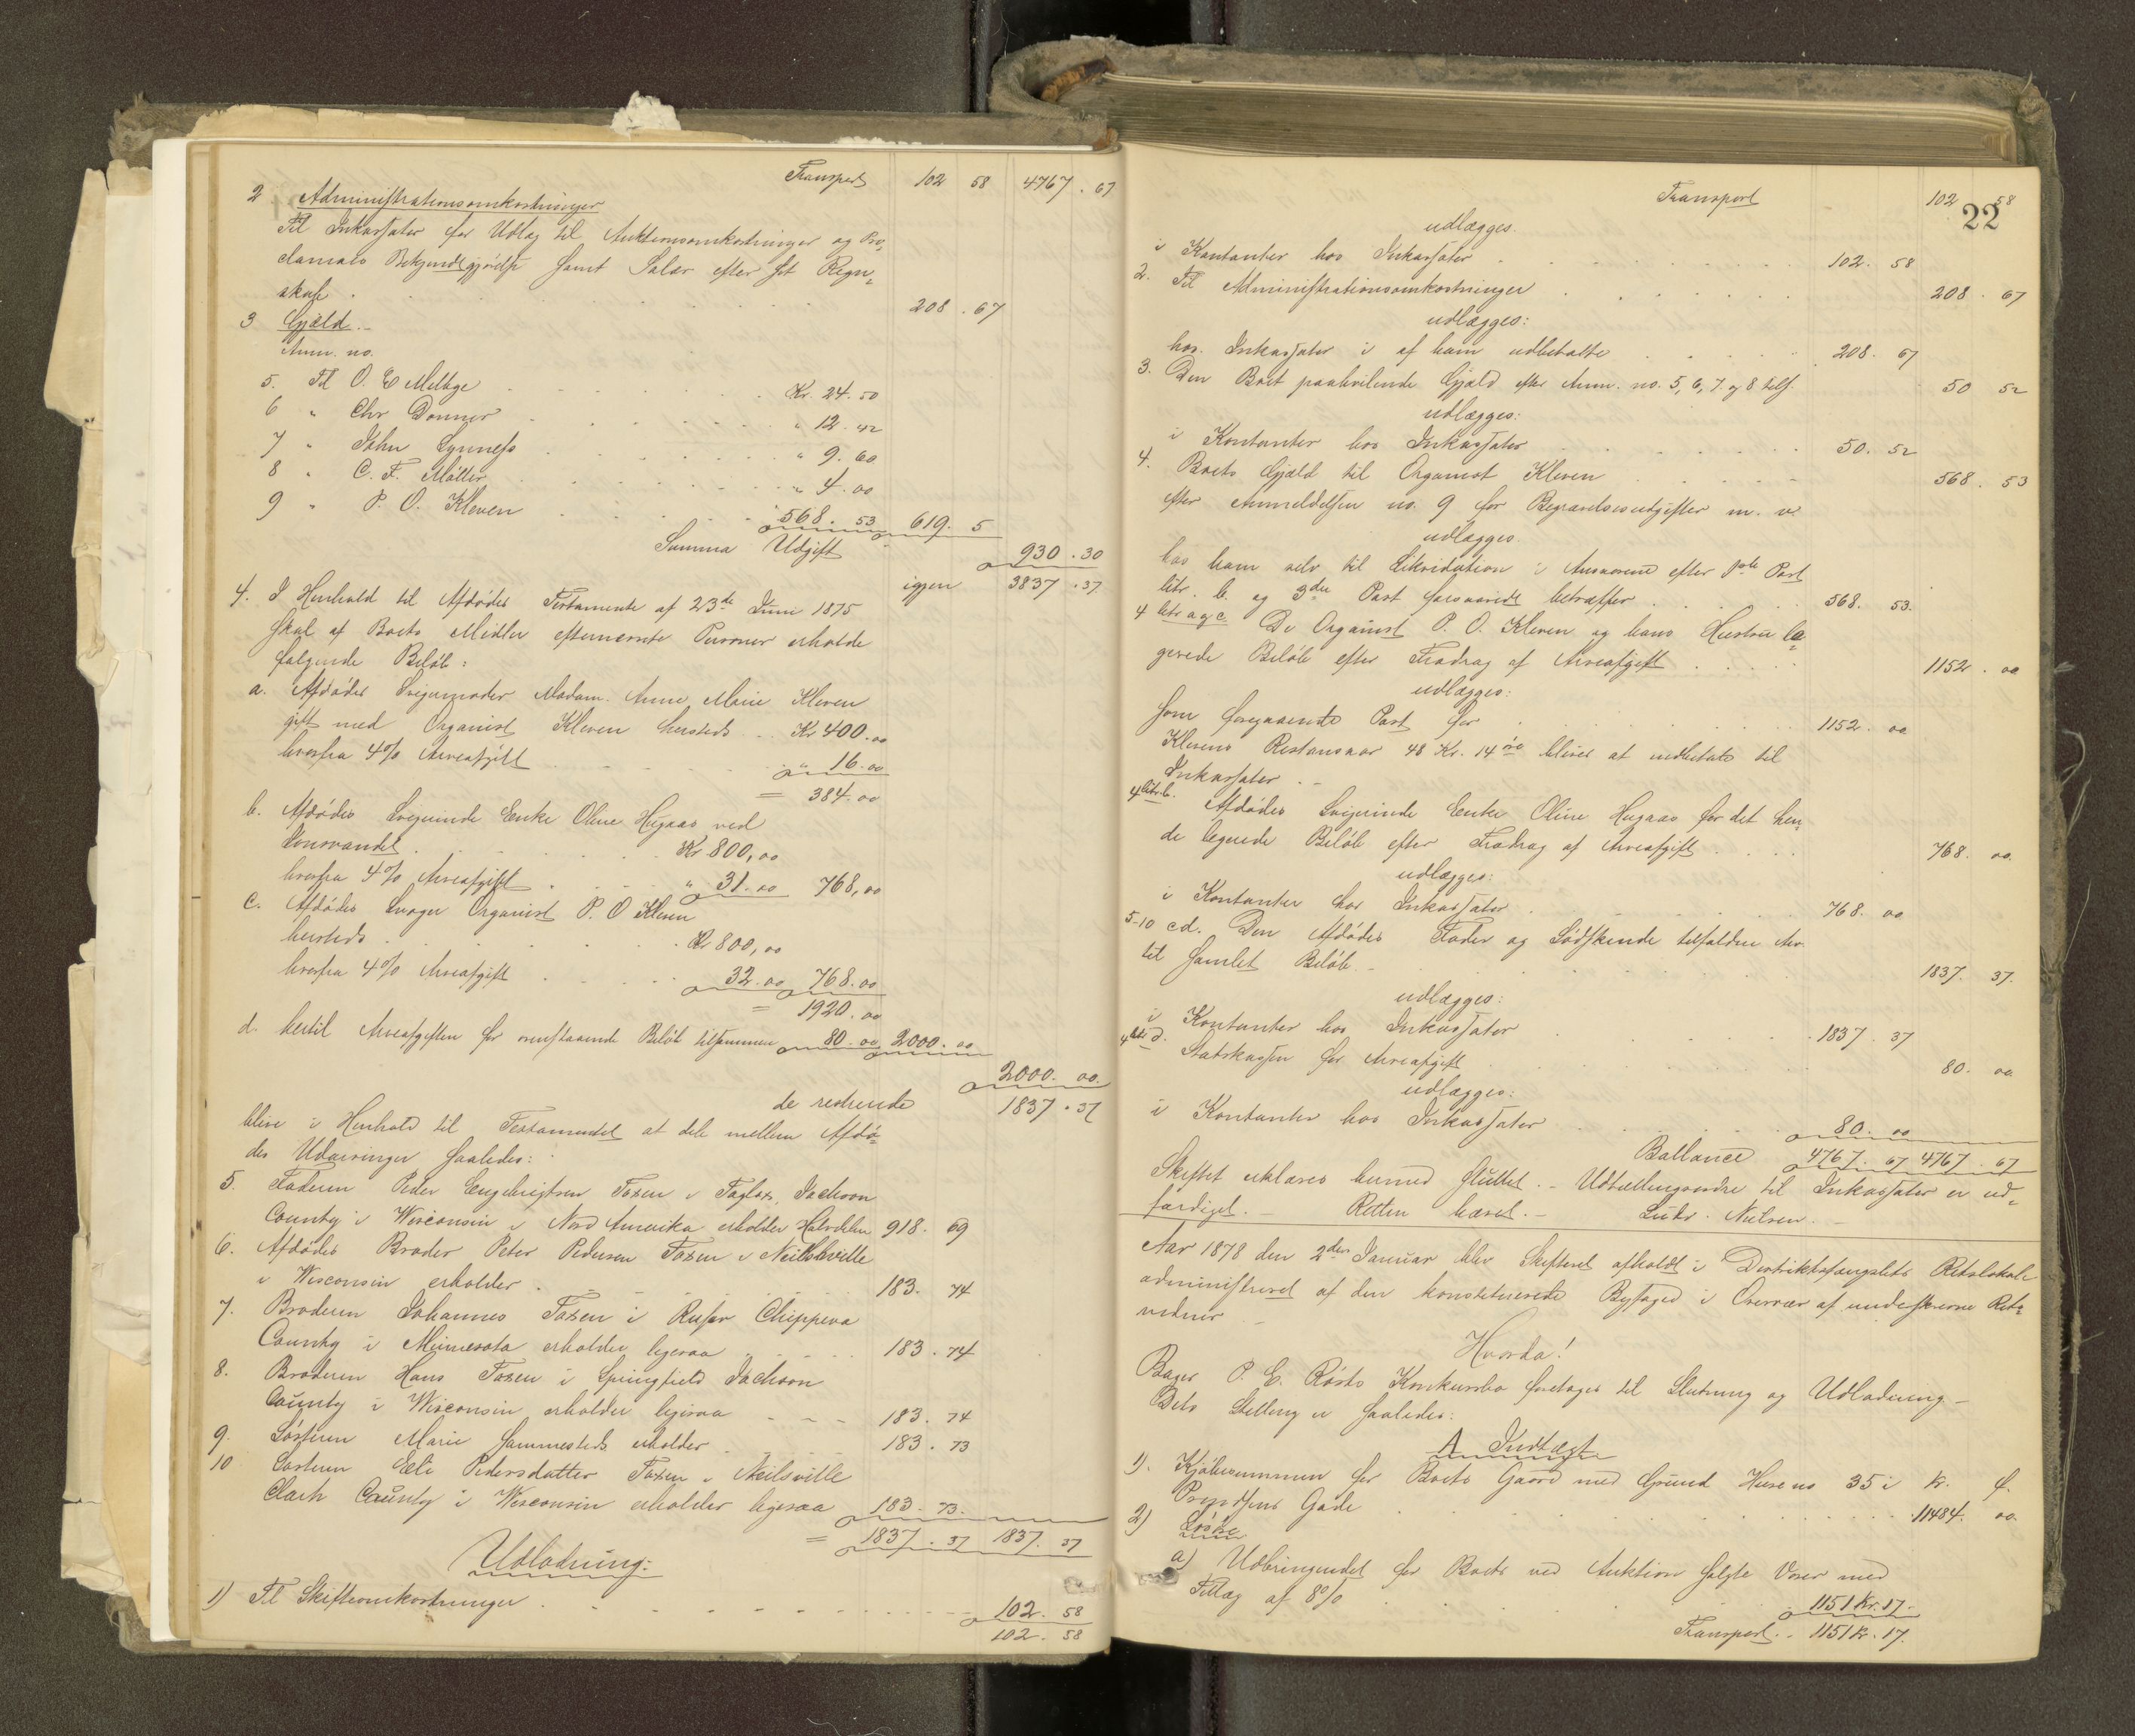 Transport 102 58 4767. 67
2 Administrationsomkostninger
Til Inkassator for Udlæg til Auktionsomkostninger og Pro-
clamaets Bekjendtgjørelse samt Salær efter hst Regn-
skab . 208. 67
3 Gjæld.-
Anm. no.
5. Til O. E Melbye Kr. 24. 50
6 " Chr Donner " 12. 42
7 " John Lynness " 9. 60
8 " C. F. Møller " 4. 00
9 " P. O. Kleven 568. 53 619. 5
Summa Udgift 930. 30
igjen 3837. 37
4. I Henhold til Afdødes Testamente af 23de Juni 1875
skal af Boets Midler efternævnte Personer erholde
følgende Beløb:
a. Afdødes Svigermoder Madam. Anne Marie Kleven
gift med Organist Kleven hersteds Kr 400.00
hvorfra 4% Arveafgift " 16.00
= 384.00
b. Afdødes Svigerinde Enke Oline Hugaas ved
Kr 800,00
hvorfra 4% Arveafgift " 31.00 768,00
c. Afdødes Svoger Organist P. O Kleven
hersteds Kr 800,00
hvorfra 4% Arveafgift 32.00 768.00
= 1920.00
d. hertil Arveafgiften for ovenstaaende Beløb tilsammen 80.00 2000.00
2000. 00.
de resterende 1837. 37
blive i Henhold til Testamentet at dele mellem Afdø-
des Udarvinger saaledes:
5. Faderen Peder Engebrigtsen Foxen i Jackson
County i Wisconsin i Nord Amerika erholder Halvdelen 918. 69
6. Afdødes Broder Peter Pedersen Foxen i Neillsville
i Wisconsin erholder 183. 74
7. Broderen Johannes Foxen i Chippeva
County i Minnesota erholder ligesaa 183. 74
8. Broderen Hans Foxen i Springfield Jackson
County i Wisconsin erholder ligesaa 183. 74
9. Søsteren Marie sammesteds erholder 183. 73
10 Søsteren Eli Pedersdatter Foxen i Neilsville
Clark County i Wisconsin erholder ligesaa 183. 73.
= 1837. 37 1837. 37
Udlodning:
1) Til Skifteomkostninger 102. 58
102. 58
22
Transport 102 58
udlægges.
i Kontanter hos Inkassator 102. 58
2. Til Administrationsomkostninger 208. 67
udlægges:
hos Inkassator i af ham udbetalte 208. 67
3. Den Boet paahvilende Gjæld efter Anm. no. 5, 6, 7 og 8 tils. 50 52
udlægges:
i Kontanter hos Inkassator 50. 52
4. Boets Gjæld til Organist Kleven 568. 53
efter Anmeldelsen no. 9 for Begravelsesudgifter m. v.
udlægges.
hos ham selv til Likvidation i Ansvarene efter 1ste Post
litr. b. og 3die Post forsaavidt betræffer 568. 53.
4 litr a og c. De Organist P. O. Kleven og hans Hustru le-
gerede Beløb efter Fradrag af Arveafgift 1152. 00
udlægges:
som foregaaende Post for 1152. 00
Klevens Restansvar 48 Kr. 14 øre bliver at indbetale til
Inkassator.-
4 litr. b. Afdødes Svigerinde Enke Oline Hugaas for det hen-
de legerede Beløb efter Fradrag af Arveafgift 768. 00.
udlægges:
i Kontanter hos Inkassator 768. 00
5-10 cd. Den Afdødes Fader og Sødskende tilfaldne Arv
til samlet Beløb.- 1837. 37.
udlægges:
i Kontanter hos Inkassator 1837. 37
4 litr d. Statskassen for Arveafgift 80. 00.
udlægges:
i Kontanter hos Inkassator 80. 00
Ballance 4767. 67 4767. 67
Skiftet erklæres hermed sluttet.- Udbetalingsordre til Inkassator er ud-
færdiget.- Retten hævet.- Ludv. Nielsen.-
Aar 1878 den 2den Januar blev Skifteret afholdt i Distriktsfængslets Retslokale
administreret af den konstituerede Byfoged i Overvær af undeskrevne Rets-
vidner
Hvorda!
Bager P. E. Røsts Konkursbo foretages til Slutning og Udlodning.-
Bets Stilling er saaledes:
A Indtægt
1). Kjøbesummen for Boets Gaard med Grund Huse no 35 i Kr. ø.
Gade 11484. 00.
2) Løsøre
a) Udbringendet for Boets ved Auktion solgte Varer med
Tillæg af 8% 1151 Kr. 17.
Transport.- 1151 Kr. 17.